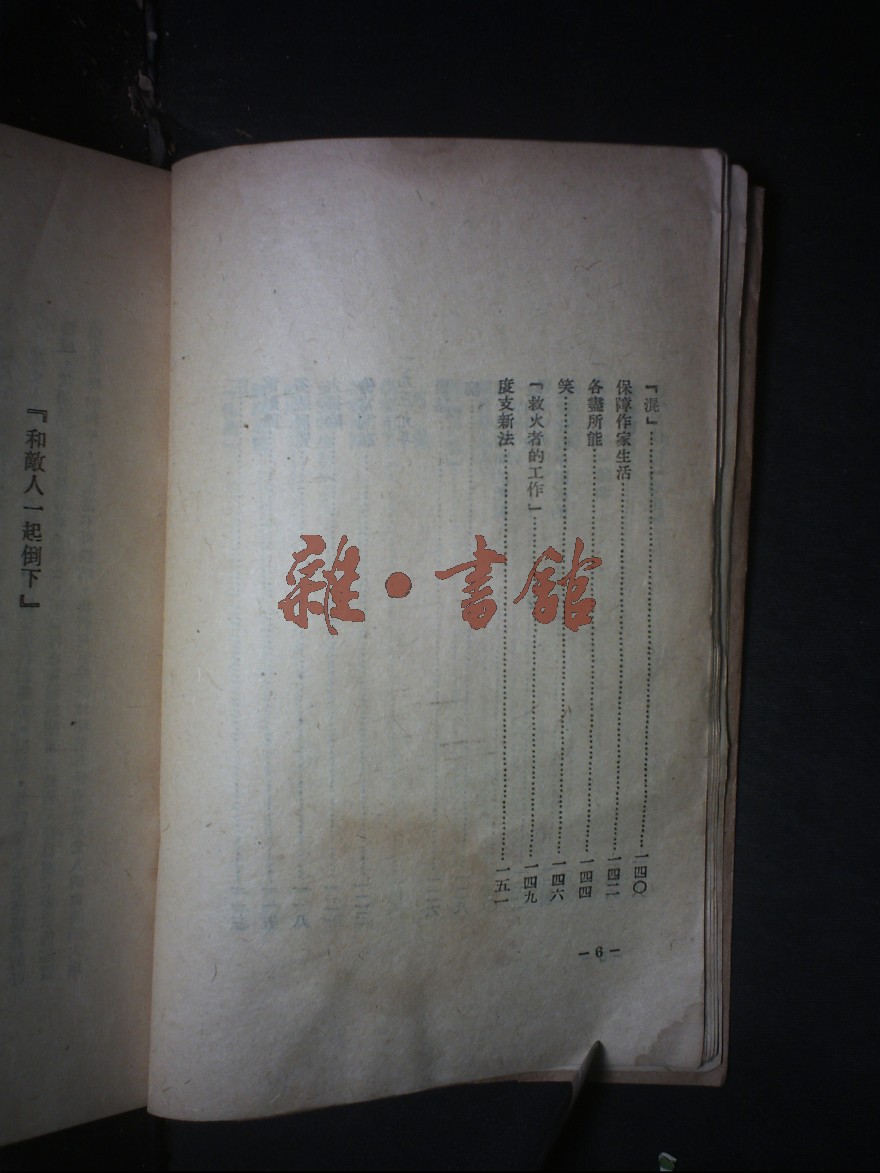 『混』……一四〇
保障作家生活……一四二
各盡所能……一四四
笑……一四六
『救火者的工作』……一四九
度支新法……一五一
－6－
『和敵人一起倒下』
雜·書館